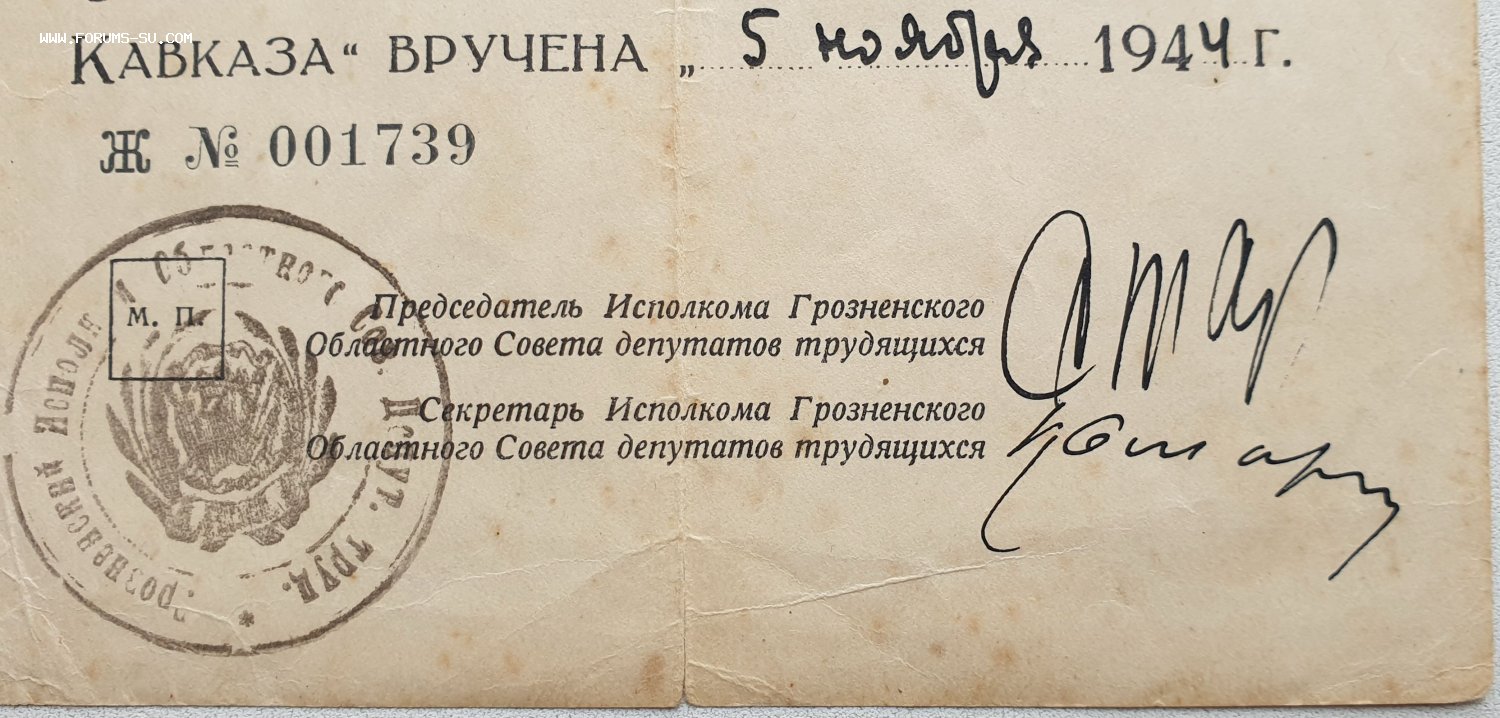 www.forums-su.com
КАВКАЗА“ ВРУЧЕНА „ 5 ноября 1944 г.
Ж № 001739
М. П.
Председатель Исполкома Грозненского
Областного Совета депутатов трудящихся
Секретарь Исполкома Грозненского
Областного Совета депутатов трудящихся
Грозненский Исполн Областного Сов. Депут. Труд. *